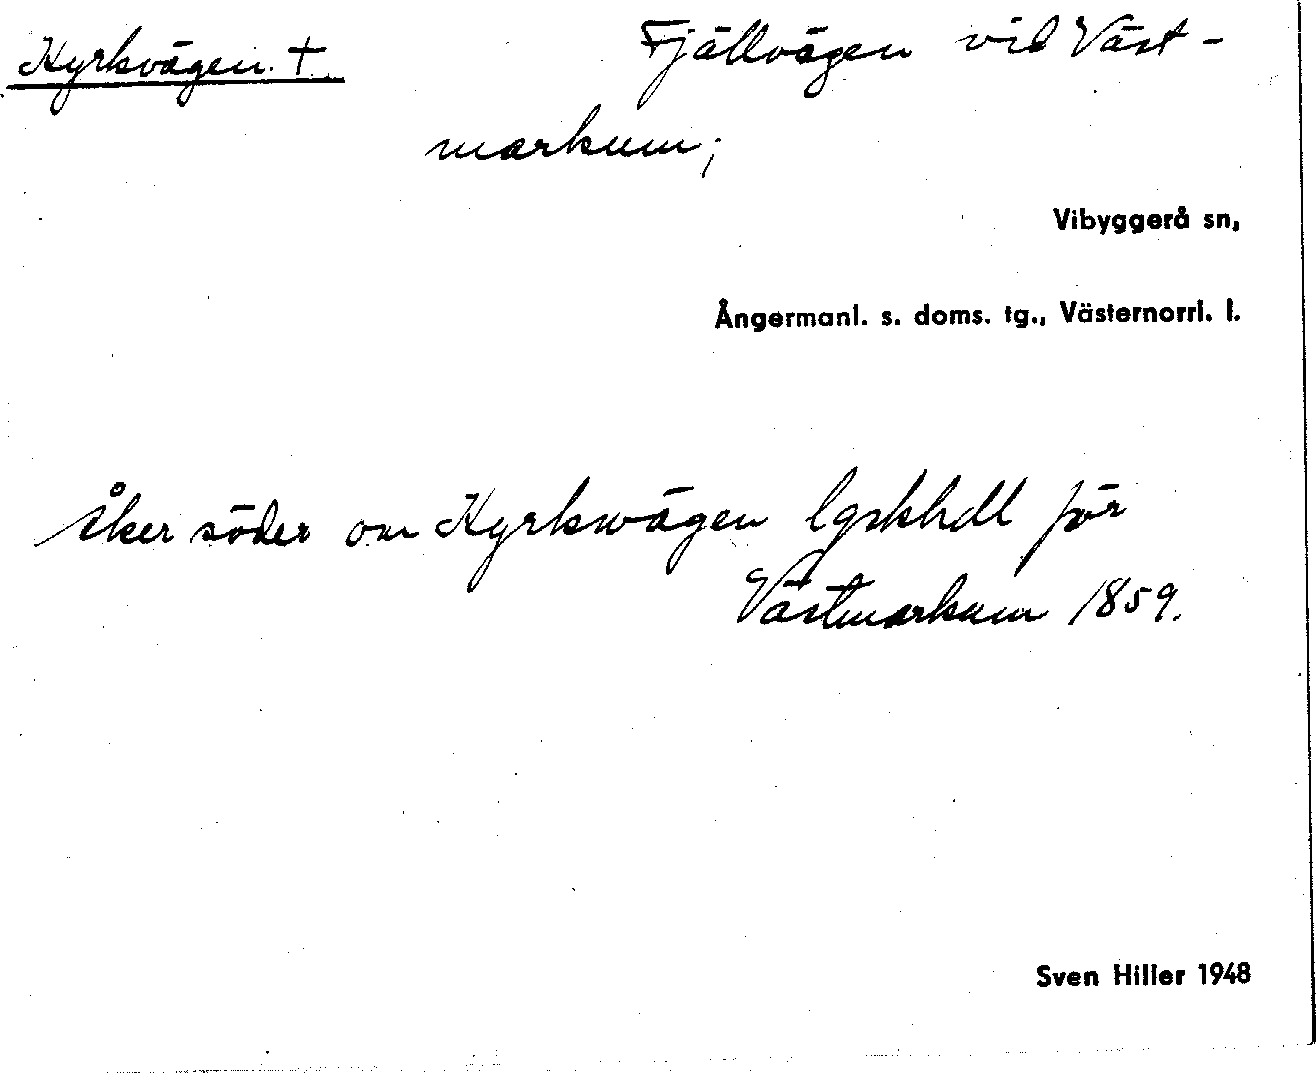 Kyrkvägen. + Fjällvägen vid Väst-
markum;
Vibyggerå sn,
Ångermanl. s. doms. tg., Västernorrl. l.
Åker söder om Kyrkwägen lgskhdl för
Västmarkum 1859.
Sven Hiller 1948